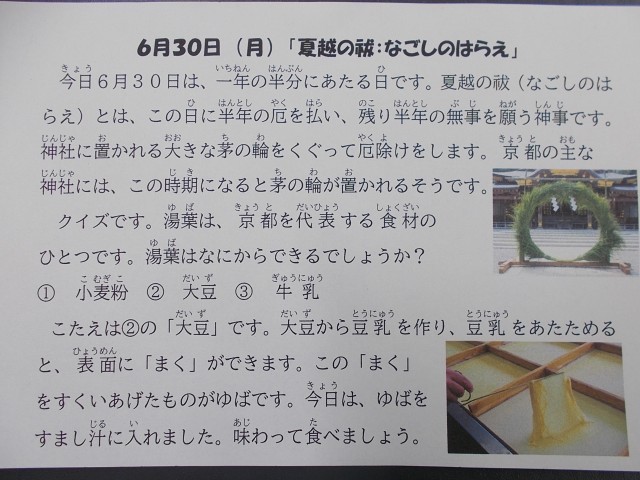 6月30日（月）「夏越の祓：なごしのはらえ」
今日６月３０日は、一年の半分にあたる日です。夏越の祓（なごしのは
らえ）とは、この日に半年の厄を払い、残り半年の無事を願う神事です。
神社に置かれる大きな茅の輪をくぐって厄除けをします。京都の主な
神社には、この時期になると茅の輪が置かれるそうです。
クイズです。湯葉は、京都を代表する食材の
ひとつです。湯葉はなにからできるでしょうか？
① 小麦粉 ② 大豆 ③ 牛乳
こたえは②の「大豆」です。大豆から豆乳を作り、豆乳をあたためる
と、表面に「まく」ができます。この「まく」
をすくいあげたものがゆばです。今日は、ゆばを
すまし汁に入れました。味わって食べましょう。